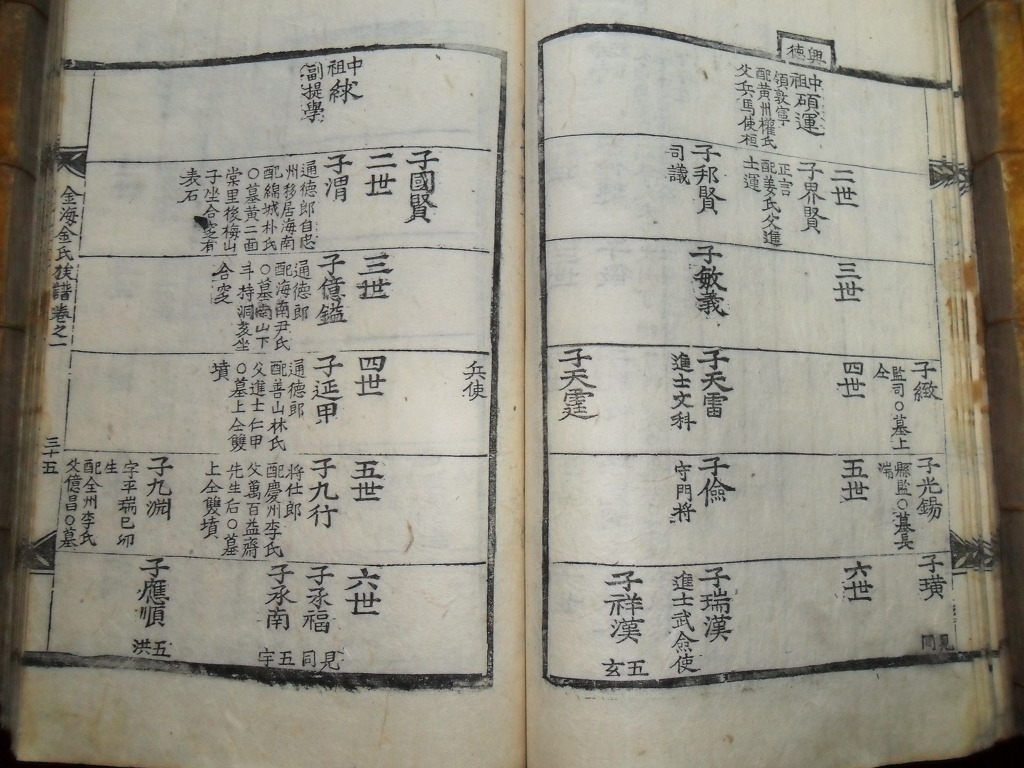 興德
中祖碩運
領敦寧
配黃州權氏
父兵馬使桓
二世
子界賢
正言
配姜氏父進
士運
子邦賢
司議
三世
子敏義
子緻
監司○墓上
仝
四世
子天雷
進士文科
子天霆
子光鍚
縣監○墓長
湍
五世
子儉
守門將
子璜
見同
六世
子瑞漢
進士武僉使
子祥漢
五玄
兵使
中祖 紑
副提學
子國賢
二世
子渭
通德郎自忠
州移居海南
配綿城朴氏
○墓黃二面
棠里後梅山
子坐合窆有
表石
三世
子億鎰
通德郎
配海南尹氏
○墓南山下
斗持洞亥坐
合窆
四世
子延甲
通德郎
配善山林氏
父進士仁甲
○墓上仝雙
墳
五世
子九行
將仕郎
配慶州李氏
父萬百益齋
先生后○墓
上仝雙墳
子九淵
字平瑞己卯
生
配全州李氏
父億昌○墓
六世
子承福
見同
子承南
五宇
子應順
五洪
金海金氏族譜卷之一
三十五